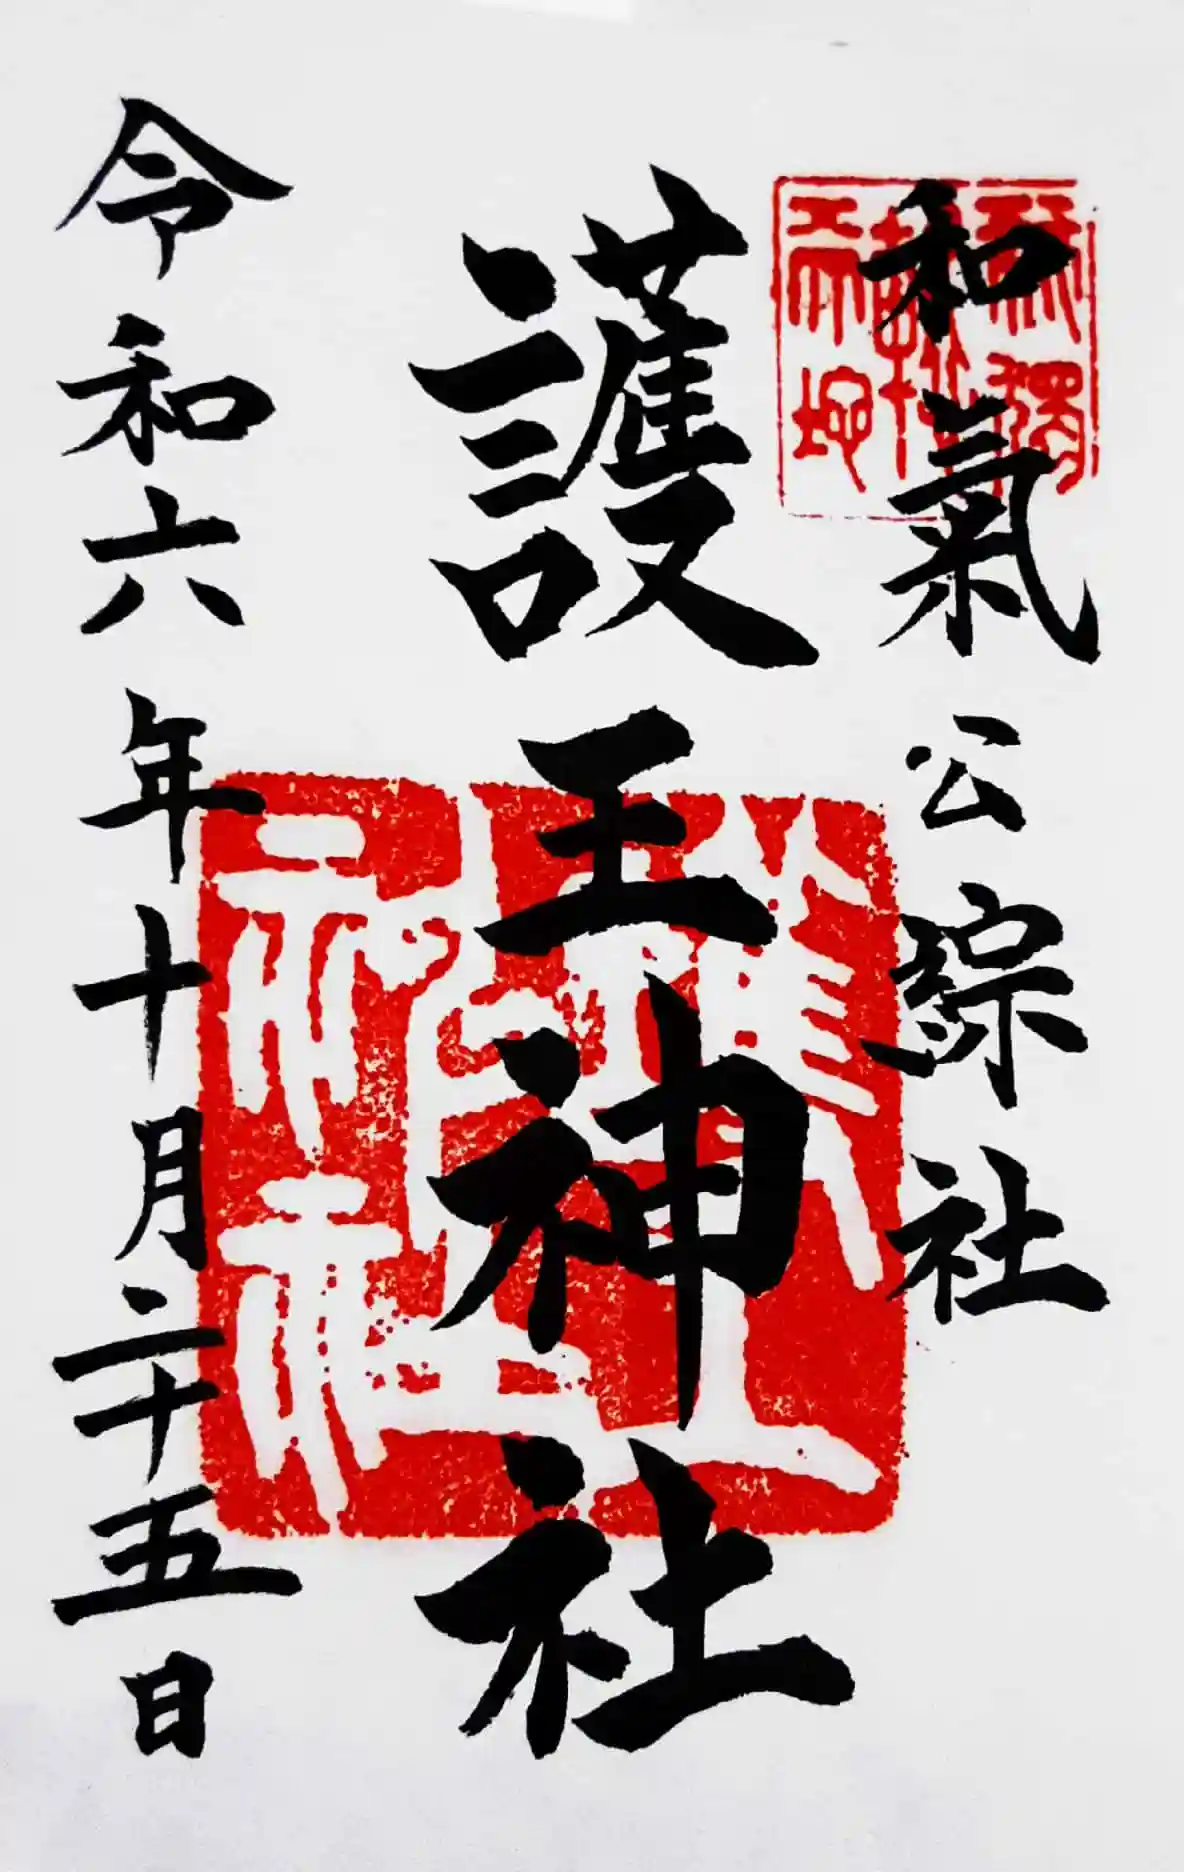 和氣公綜社
護王神社
令和六年十月二十五日